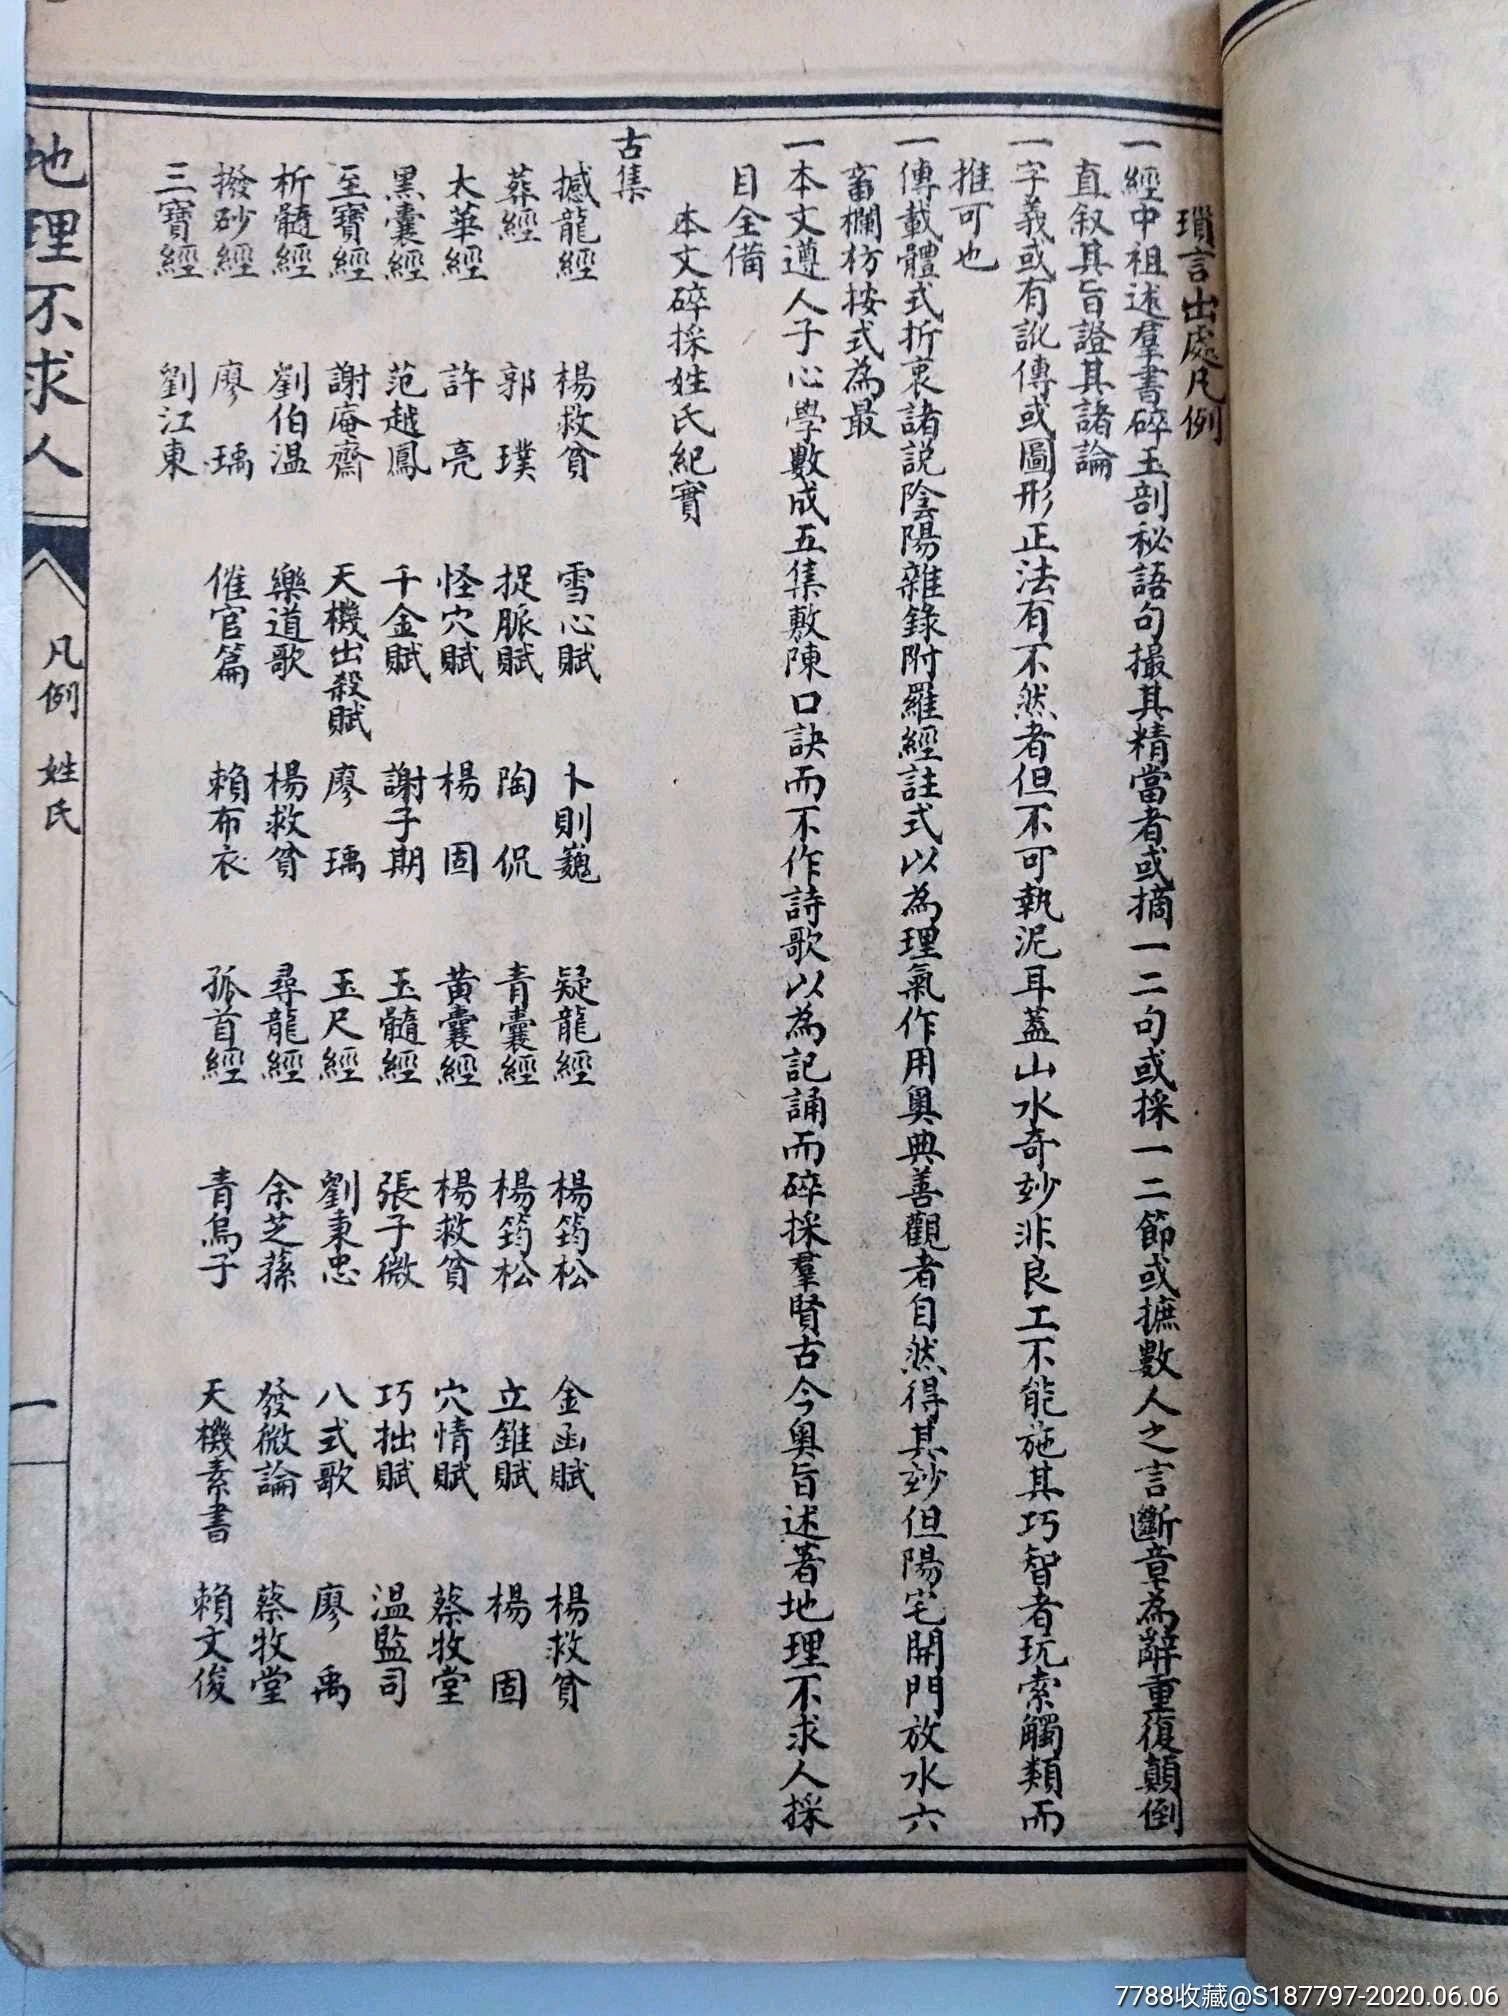 瑣言出處凡例
一經中祖述羣書碎玉剖秘語句撮其精當者或摘一二句或採一二節或摭數人之言斷章為辭重復顛倒
直叙其旨證其諸論
一字義或有訛傳或圖形正法有不然者但不可執泥耳蓋山水奇妙非良工不能施其巧智者玩索觸類而
推可也
一傳載體式折衷諸説陰陽雜錄附羅經註式以為理氣作用奧典善觀者自然得其妙但陽宅開門放水六
畜欄枋按式為最
一本文遵人子心學數成五集敷陳口訣而不作詩歌以為記誦而碎採羣賢古今奧旨述著地理不求人採
目全備
本文碎採姓氏紀實
古集
撼龍經 楊救貧 雪心賦 卜則巍 疑龍經 楊筠松 金函賦 楊救貧
葬經 郭璞 捉脈賦 陶侃 青囊經 楊筠松 立錐賦 楊固
太華經 許亮 怪穴賦 楊固 黃囊經 楊救貧 穴情賦 蔡牧堂
黑囊經 范越鳳 千金賦 謝子期 玉髓經 張子微 巧拙賦 温監司
至寶經 謝庵齋 天機出殺賦 廖瑀 玉尺經 劉秉忠 八式歌 廖禹
析髓經 劉伯温 樂道歌 楊救貧 尋龍經 余芝蓀 發微論 蔡牧堂
撥砂經 廖瑀 催官篇 賴布衣 孤首經 青烏子 天機素書 賴文俊
三寶經 劉江東
地理不求人
凡例 姓氏
一
7788收藏@S187797-2020.06.06